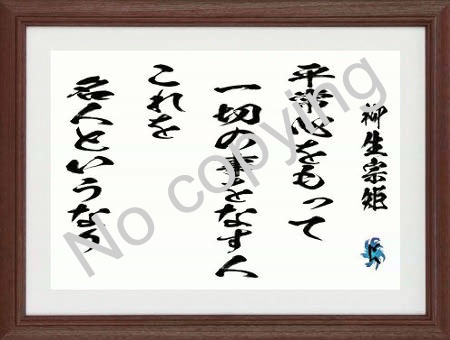 柳生宗矩
平常心をもって
一切の事をなす人
これを
名人というなり
No copying